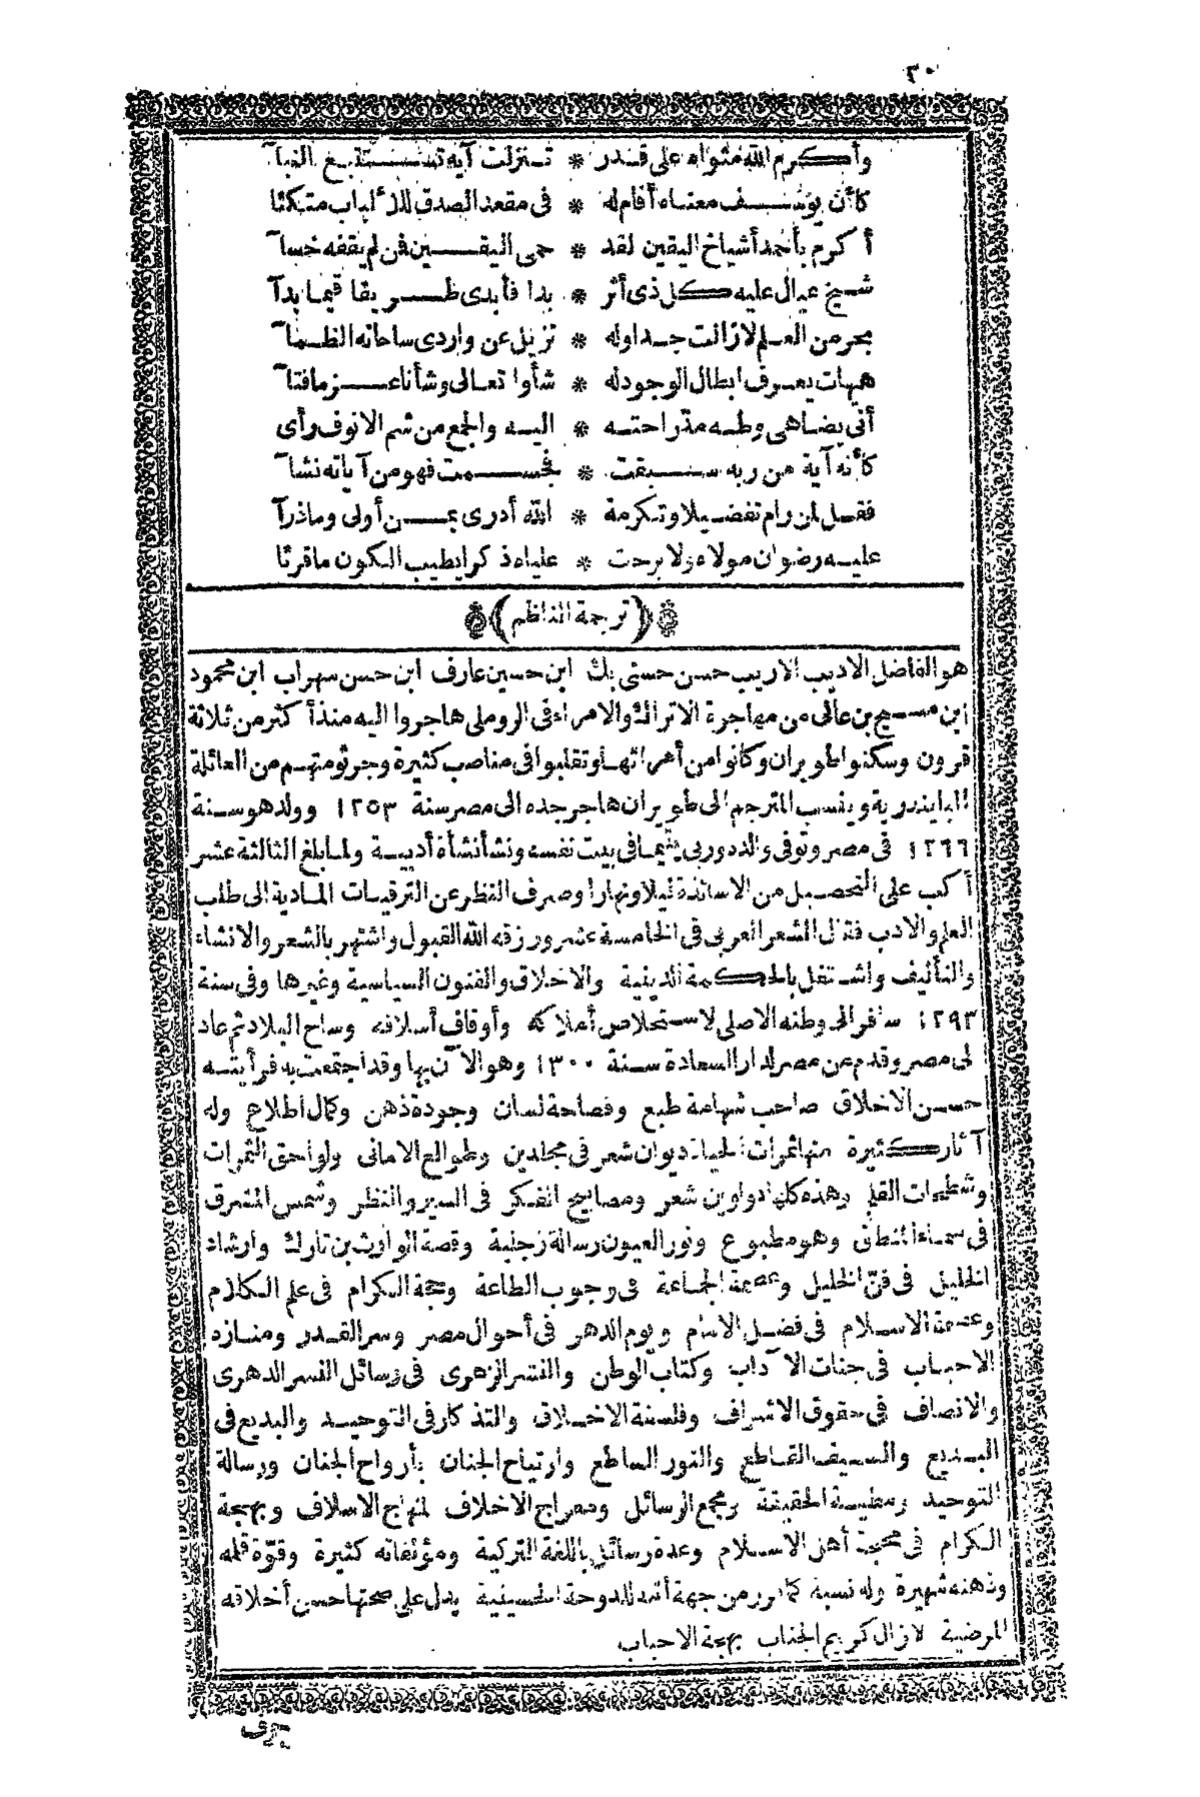 ٣٠
وأكرم الله مثواه على قدر * تنزلت آية تستتبع النبآ
كأن يوسف معناه أقام له * فى مقعد الصدق للألباب متكئا
أكرم بأحمد أشياخ اليقين لقد * حمى اليقين فن لم يقفه خسآ
شيخ عيال عليه كل ذى أثر * بدا فأبدى طريقا قيما بدآ
بحر من العلم لازالت جداوله * تزيل عن واردى ساحاته الظمآ
هيهات يعرف ابطال الوجود له * شأوا تعالى وشأنا عز مافتآ
أنى يضاهى وطه مد راحته * اليه والجمع من شم الانوف رأى
كأنه آية من ربه سبقت * فجسمت فهو من آياته نشآ
فقل لمن رام تفضيلا وتكرمة * الله أدرى بمن أولى وماذرآ
عليه رضوان مولاه ولا برحت * علياه ذكرا يطيب الكون ماقرئا
(ترجمة الناظم)
هو الفاضل الاديب الاريب حسن حسنى بك ابن حسين عارف ابن حسن سهراب ابن محمود
ابن مسيح بن عالى من مهاجرة الاتراك والامراء فى الروملى هاجروا اليه منذ أكثر من ثلاثة
قرون وسكنوا طويران وكانوا من أمرائها وتقلبوا فى مناصب كثيرة وجرثومتهم من العائلة
البايندرية وينسب المترجم الى طويران هاجر جده الى مصر سنة ١٢٥٣ وولد هو سنة
١٢٦٦ فى مصر وتوفى والده وربى يتيما فى بيت نفسه ونشأ نشأة أدبية ولما بلغ الثالثة عشر
أكب على التحصيل من الاساتذة ليلا ونهارا وصرف النظر عن الترقيات المادية الى طلب
العلم والادب فقال الشعر العربى فى الخامسة عشر ورزقه الله القبول واشتهر بالشعر والانشاء
والتأليف واشتغل بالحكمة الدينية والاخلاق والفنون السياسية وغيرها وفى سنة
١٢٩٣ سافر الى وطنه الاصلى لاستخلاص أملاكه وأوقاف أسلافه وساح البلاد ثم عاد
لى مصر وقدم من مصر لدار السعادة سنة ١٣٠٠ وهو الآن بها وقد اجتمعت به فرأيته
حسن الاخلاق صاحب شهامة طبع وفصاحة لسان وجودة ذهن وكمال اطلاع وله
آثار كثيرة منها ثمرات الحياة ديوان شعر فى مجلدين وطوالع الامانى ولواحق الثمرات
وشطحات القلم وهذه كلها دواوين شعر ومصابيح الفكر فى السير والنظر وشمس المشرق
فى سماء المنطق وهو مطبوع ونور العيون رسالة زجلية وقصة الوارث بن تارك وارشاد
الخليل فى فنّ الخليل وعصمة الجماعة فى وجوب الطاعة وحجة الكرام فى علم الكلام
وعصمة الاسلام فى فضل الامام ويوم الدهر فى أحوال مصر وسر القدر ومنازه
الاحباب فى جنات الآداب وكتاب الوطن والنشر الزهرى فى رسائل النسر الدهرى
والانصاف فى حقوق الاشراف وفلسفة الاخلاق والتذكار فى التوحيد والبديع فى
البديع والسيف القاطع والنور الساطع وارتياح الجنان بأرواح الجنان ورسالة
التوحيد ومطية الحقيقة ومجمع الرسائل ومعراج الاخلاف لمنهاج الاسلاف وبهجة
الكرام فى محجة أهل الاسلام وعدة رسائل باللغة التركية ومؤلفاته كثيرة وقوّة قلمه
وذهنه شهيرة وله نسبة من جهة أمه للدوحة الحسينية يدل على صحتها حسن أخلاقه
المرضية لازال كريم الجناب بهجة الاحباب